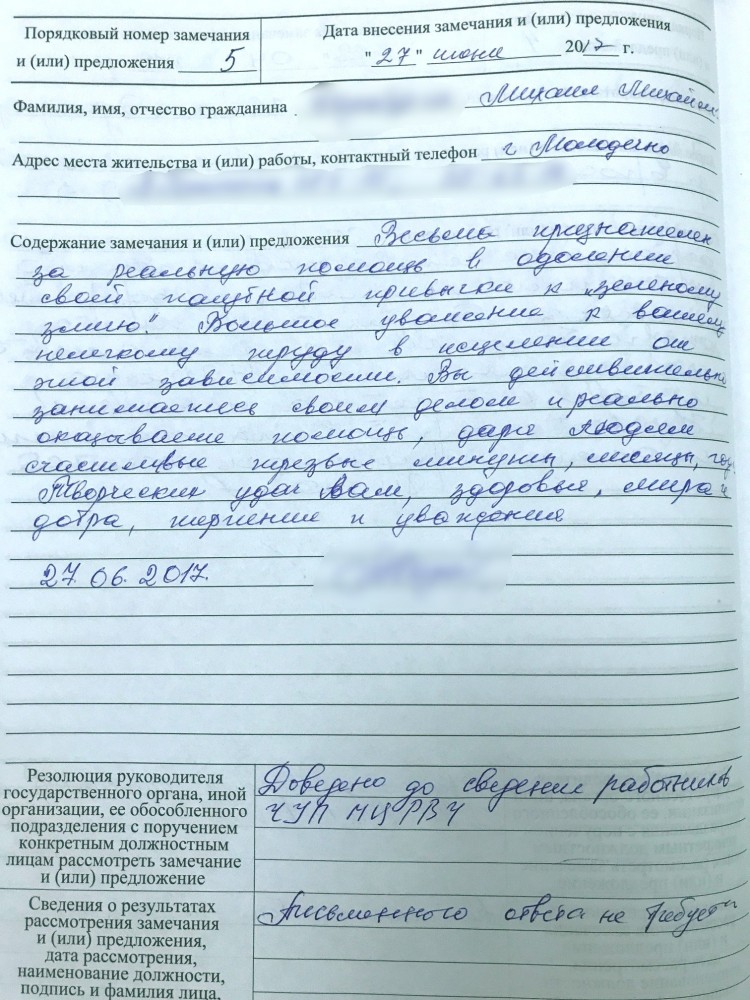 Порядковый номер замечания
и (или) предложения 5
Дата внесения замечания и (или) предложения
"27" июня 2017 г.
Фамилия, имя, отчество гражданина Михаил Михайл.
Адрес места жительства и (или) работы, контактный телефон г. Молодечно
Содержание замечания и (или) предложения Весьма признателен
за реальную помощь в одолении
своей пагубной привычки к „зеленому
змию". Большое уважение к вашему
нелегкому труду в исцелении от
этой зависимости. Вы действительно
занимаетесь своим делом и реально
оказываете помощь, даря людям
счастливые трезвые минуты, месяцы, год.
Творческих удач Вам, здоровья, мира и
добра, терпения и уважения
27.06.2017.
Резолюция руководителя
государственного органа, иной
организации, ее обособленного
подразделения с поручением
конкретным должностным
лицам рассмотреть замечание
и (или) предложение
Доведено до сведении работников
ЧУП МЦРВЧ
Сведения о результатах
рассмотрения замечания
и (или) предложения,
дата рассмотрения,
наименование должности,
подпись и фамилия лица,
Письменного ответа не требует